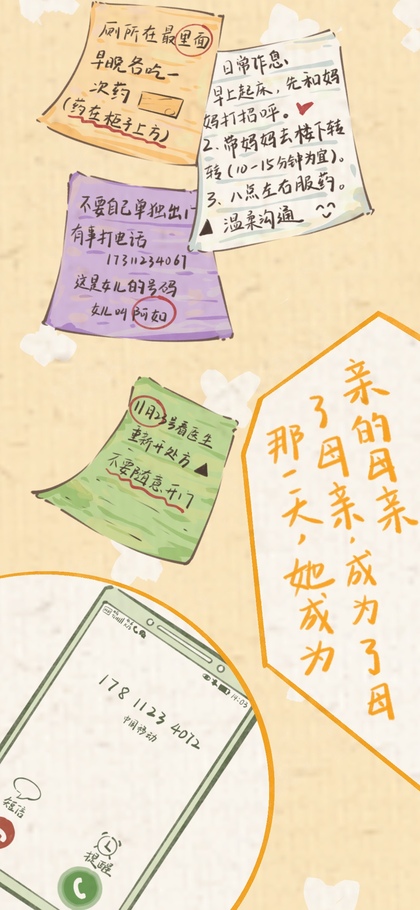 厕所在最里面
早晚各吃一
次药
(药在柜子上方)
日常作息
早上起床,先和妈
妈打招呼。
2.带妈妈去楼下转
转(10-15分钟为宜)。
3.八点左右服药。
▲温柔沟通
不要自己单独出门
有事打电话
17311234067
这是女儿的号码
女儿叫阿如
11月23号看医生
重新开处方▲
不要随意开门
那一天,她成为
了母亲,成为了母
亲的母亲
14:05
178 1123 4072
中国移动
短信
提醒